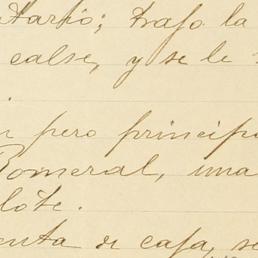 tarió; trajo la
calse, y se le
.
pero principo
Pomeral, una
lote.
enta de casa, se